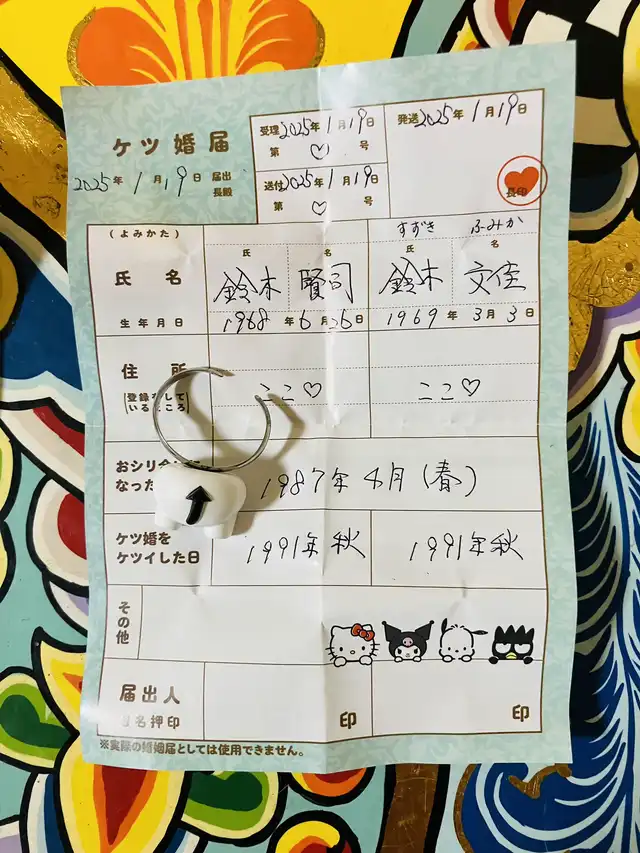 ケツ婚届
2025年 1月 19日 届出
長殿
受理 2025年 1月 19日
第 ♡ 号
送付 2025年 1月 19日
第 ♡ 号
発送 2025年 1月 19日
長印
(よみかた) すずき ふみか
氏 名 氏 名
氏名 鈴木 賢司 鈴木 文佳
生年月日 1968年 6月 26日 1969年 3月 3日
住所 ここ♡ ここ♡
おシリ
なった 1987年 4月 (春)
ケツ婚を
ケツイした日 1991年 秋 1991年 秋
その他
届出人
名押印 印 印
※実際の婚姻届としては使用できません。